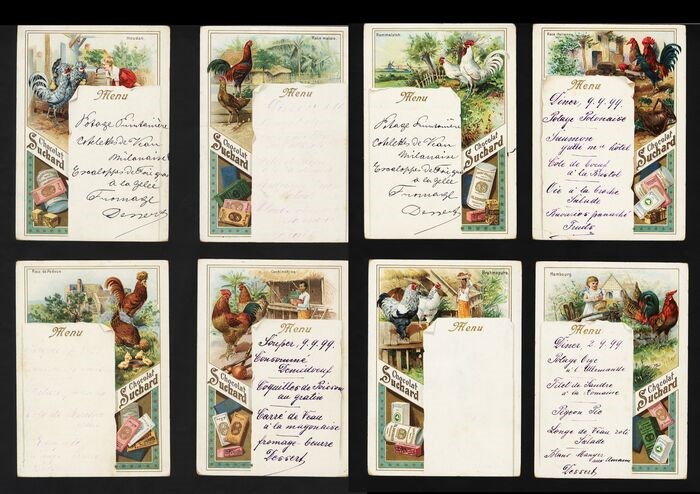 Houdan.
Menu
Potage Printanière
Cotelettes de Veau
Milanaise
Escaloppes de Foie gras
à la gelée
Fromage
Dessert
Chocolat
Suchard
Race malaise.
Menu
Chocolat
Suchard
Rammelsloh.
Menu
Potage Printanière
Cotelettes de Veau
Milanaise
Escaloppes de Foie gras
à la gelée
Fromage
Dessert
Chocolat
Suchard
Race italienne.
Menu
Dîner, 9.9.99.
Potage Polonaise
Saumon
hôtel
Côte de Boeuf
à la Bristol
Oie à la broche
Salade
Bavarois panaché
Fruits
Chocolat
Suchard
Race de Padoue
Menu
Chocolat
Suchard
Cochinchina.
Menu
Souper, 9.9.99.
Consommé
Demidoux
Coquilles de Poisson
au gratin
Carré de Veau
à la mayonaise
fromage-beurre
Dessert
Chocolat
Suchard
Brahmaputra.
Menu
Chocolat
Suchard
Hambourg.
Menu
Dîner, 2.9.99.
Potage Orge
à l'Allemande
Filet de Sandre
à la Romaine
Pigeon
Longe de Veau roti
Salade
Blanc Manger
Dessert
Chocolat
Suchard